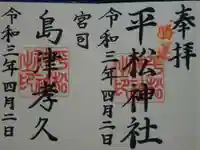 奉拝
平松神社
令和三年四月二日
宮司
島津孝久
令和三年四月二日